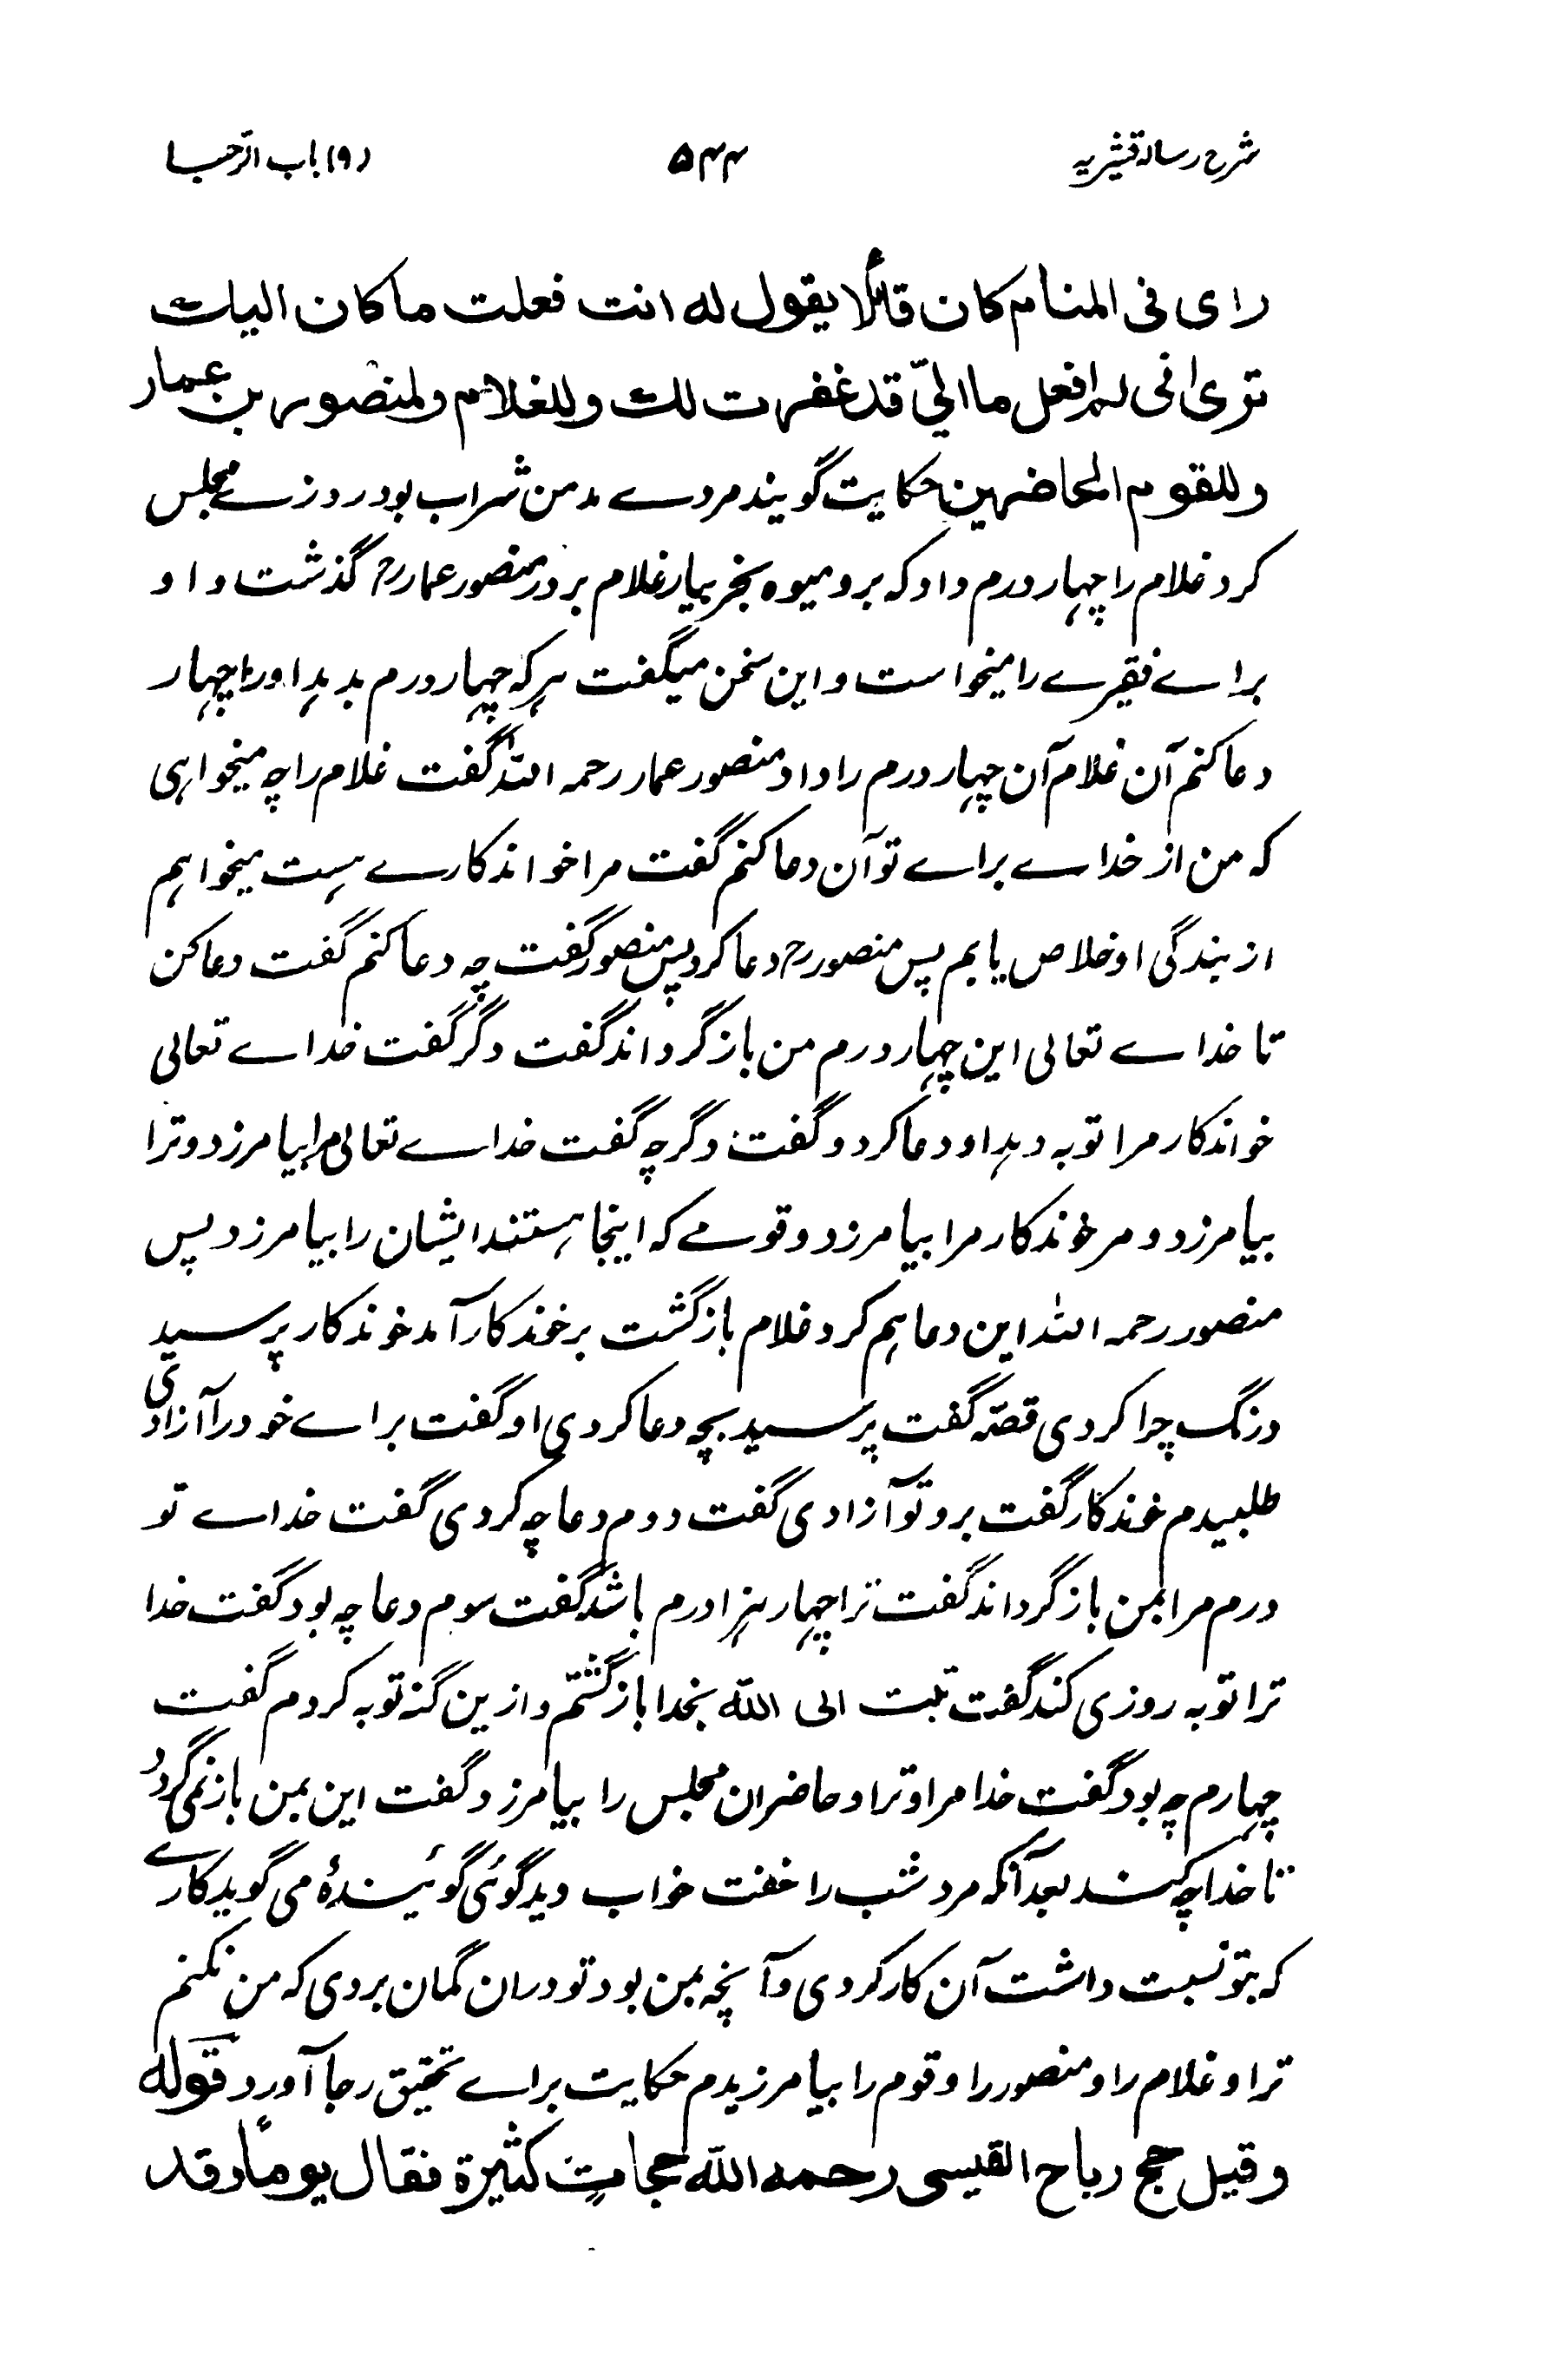 شرح رسالہ قشیریہ ۵۴۴ (۹) باب الرجا
رای فی المنام کان قائلا یقول له انت فعلت ما کان الیک
تری انی لم افعل ما الیّ قد غفرت لک وللغلام ولمنصور بن عمار
وللقوم الحاضرین حکایت گویند مردے مدمن شراب بود روزے مجلس
کرد غلام را چهار درم داد که برو میوه بخر بیار غلام بر در منصور عمار رح گذشت و او
براے فقیرے را میخواست و این سخن میگفت هر که چهار درم بدهد او را چهار
دعا کنم آن غلام آن چهار درم را داد منصور عمار رحمه الله گفت غلام را چه میخواهی
که من از خداے براے تو آن دعا کنم گفت مرا خواندکارے هست میخواهم
از بندگی او خلاص یابم پس منصور رح دعا کرد پس منصور گفت چه دعا کنم گفت دعا کن
تا خداے تعالی این چهار درم من باز گرداند گفت دگر گفت خداے تعالی
خواندکار مرا توبه دهد او دعا کرد و گفت دگر چه گفت خداے تعالی مرا بیامرزد و ترا
بیامرزد و مر خوندکار مرا بیامرزد و قومے که اینجا هستند ایشان را بیامرزد پس
منصور رحمه الله این دعا هم کرد غلام بازگشت بر خوندکار آمد خوندکار پرسید
درنگ چرا کردی قصّه گفت پرسید بچه دعا کردی او گفت براے خود را آزادی
طلبیدم خوندکار گفت برو تو آزادی گفت دوم دعا چه کردی گفت خداے تو
درم مرا بمن باز گرداند گفت ترا چهار هزار درم باشد گفت سوم دعا چه بود گفت خدا
ترا توبه روزی کند گفت تبت الی الله بخدا بازگشتم و ازین گنه توبه کردم گفت
چهارم چه بود گفت خدا مرا و ترا و حاضران مجلس را بیامرزد گفت این بمن باز نمی گردد
تا خدا چه کند بعد آنکه مرد شب را خفت خواب دید گوئی گوئیندۂ می گوید کارے
که بتو نسبت داشت آن کار کردی و آنچه بمن بود تو دران گمان بردی که من نکنم
ترا و غلام را و منصور را و قوم را بیامرزیدم حکایت براے تحقیق رجا آورد قوله
وقیل حج رباح القیسی رحمه الله حجات کثیرة فقال یوما وقد